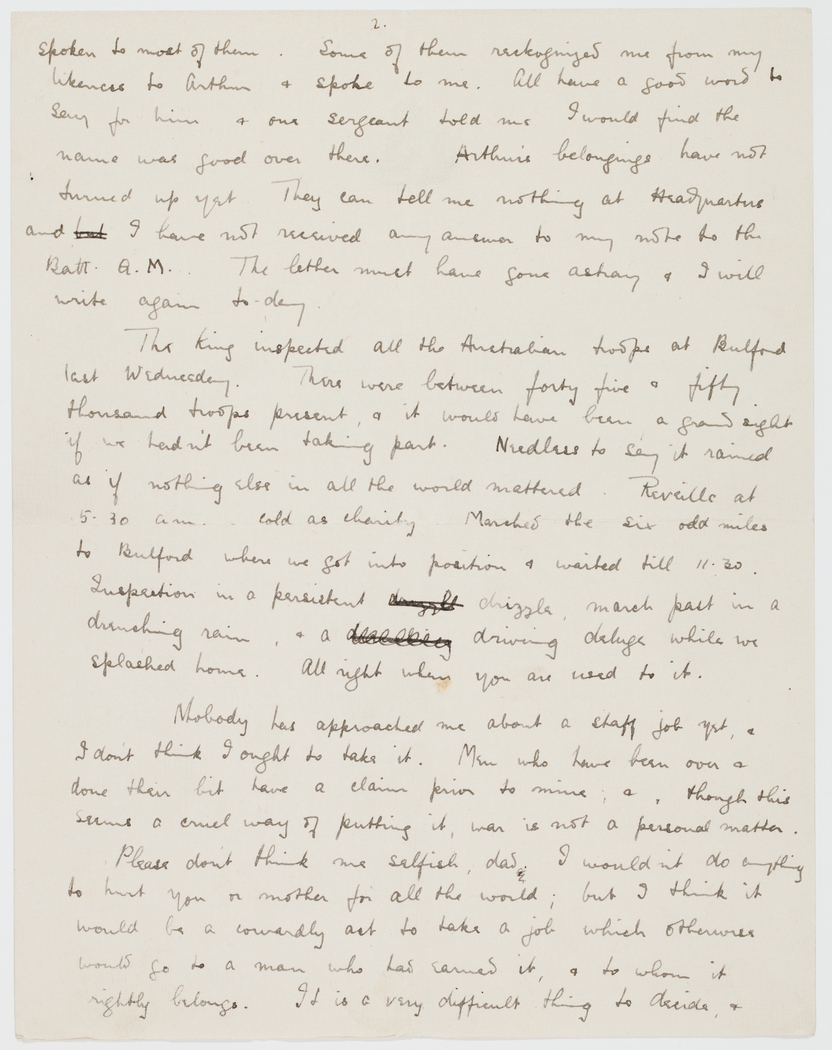 2.
spoken to most of them. Some of them reckognized me from my
likeness to Arthur & spoke to me. All have a good word to
say for him & one sergeant told me I would find the
name was good over there. Arthur's belongings have not
turned up yet. They can tell me nothing at Headquarters
and but I have not received any answer to my note to the
Batt. Q.M.. The letter must have gone astray & I will
write again to-day.
The King inspected all the Australian troops at Bulford
last Wednesday. There were between forty five & fifty
thousand troops present, & it would have been a grand sight
if we hadn't been taking part. Needless to say it rained
as if nothing else in all the world mattered. Reveille at
5.30 a.m. . cold as charity. Marched the six odd miles
to Bulford where we got into position & waited till 11.30.
Inspection in a persistent drizzle, march past in a
drenching rain, & a driving deluge while we
splashed home. All right when you are used to it.
Nobody has approached me about a staff job yet, &
I don't think I ought to take it. Men who have been over &
done their bit have a claim prior to mine; &, though this
seems a cruel way of putting it, war is not a personal matter.
Please don't think me selfish, dad. I wouldn't do anything
to hurt you or mother for all the world; but I think it
would be a cowardly act to take a job which otherwise
would go to a man who had earned it, & to whom it
rightly belongs. It is a very difficult thing to decide, &